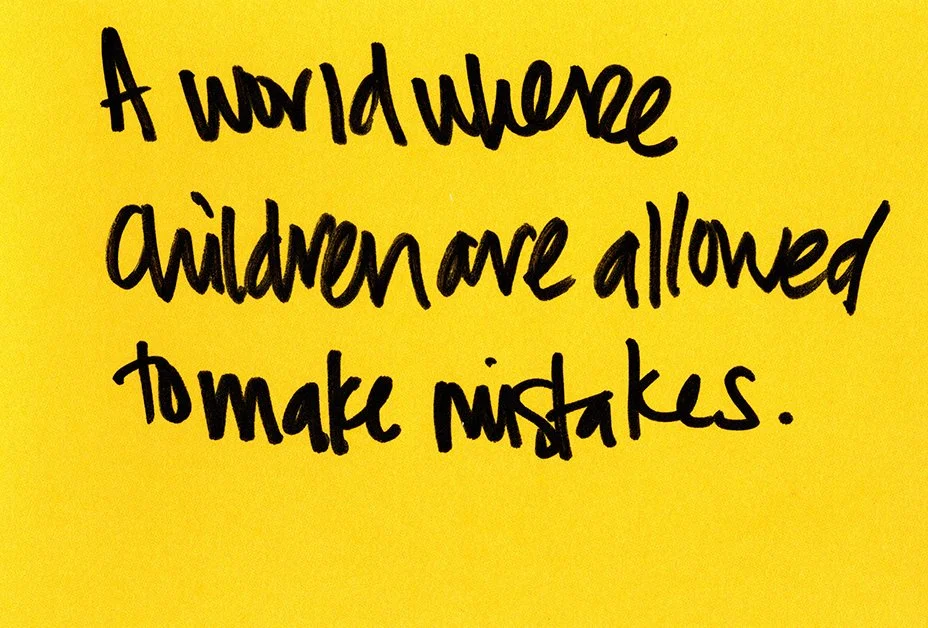 A world where
children are allowed
to make mistakes.